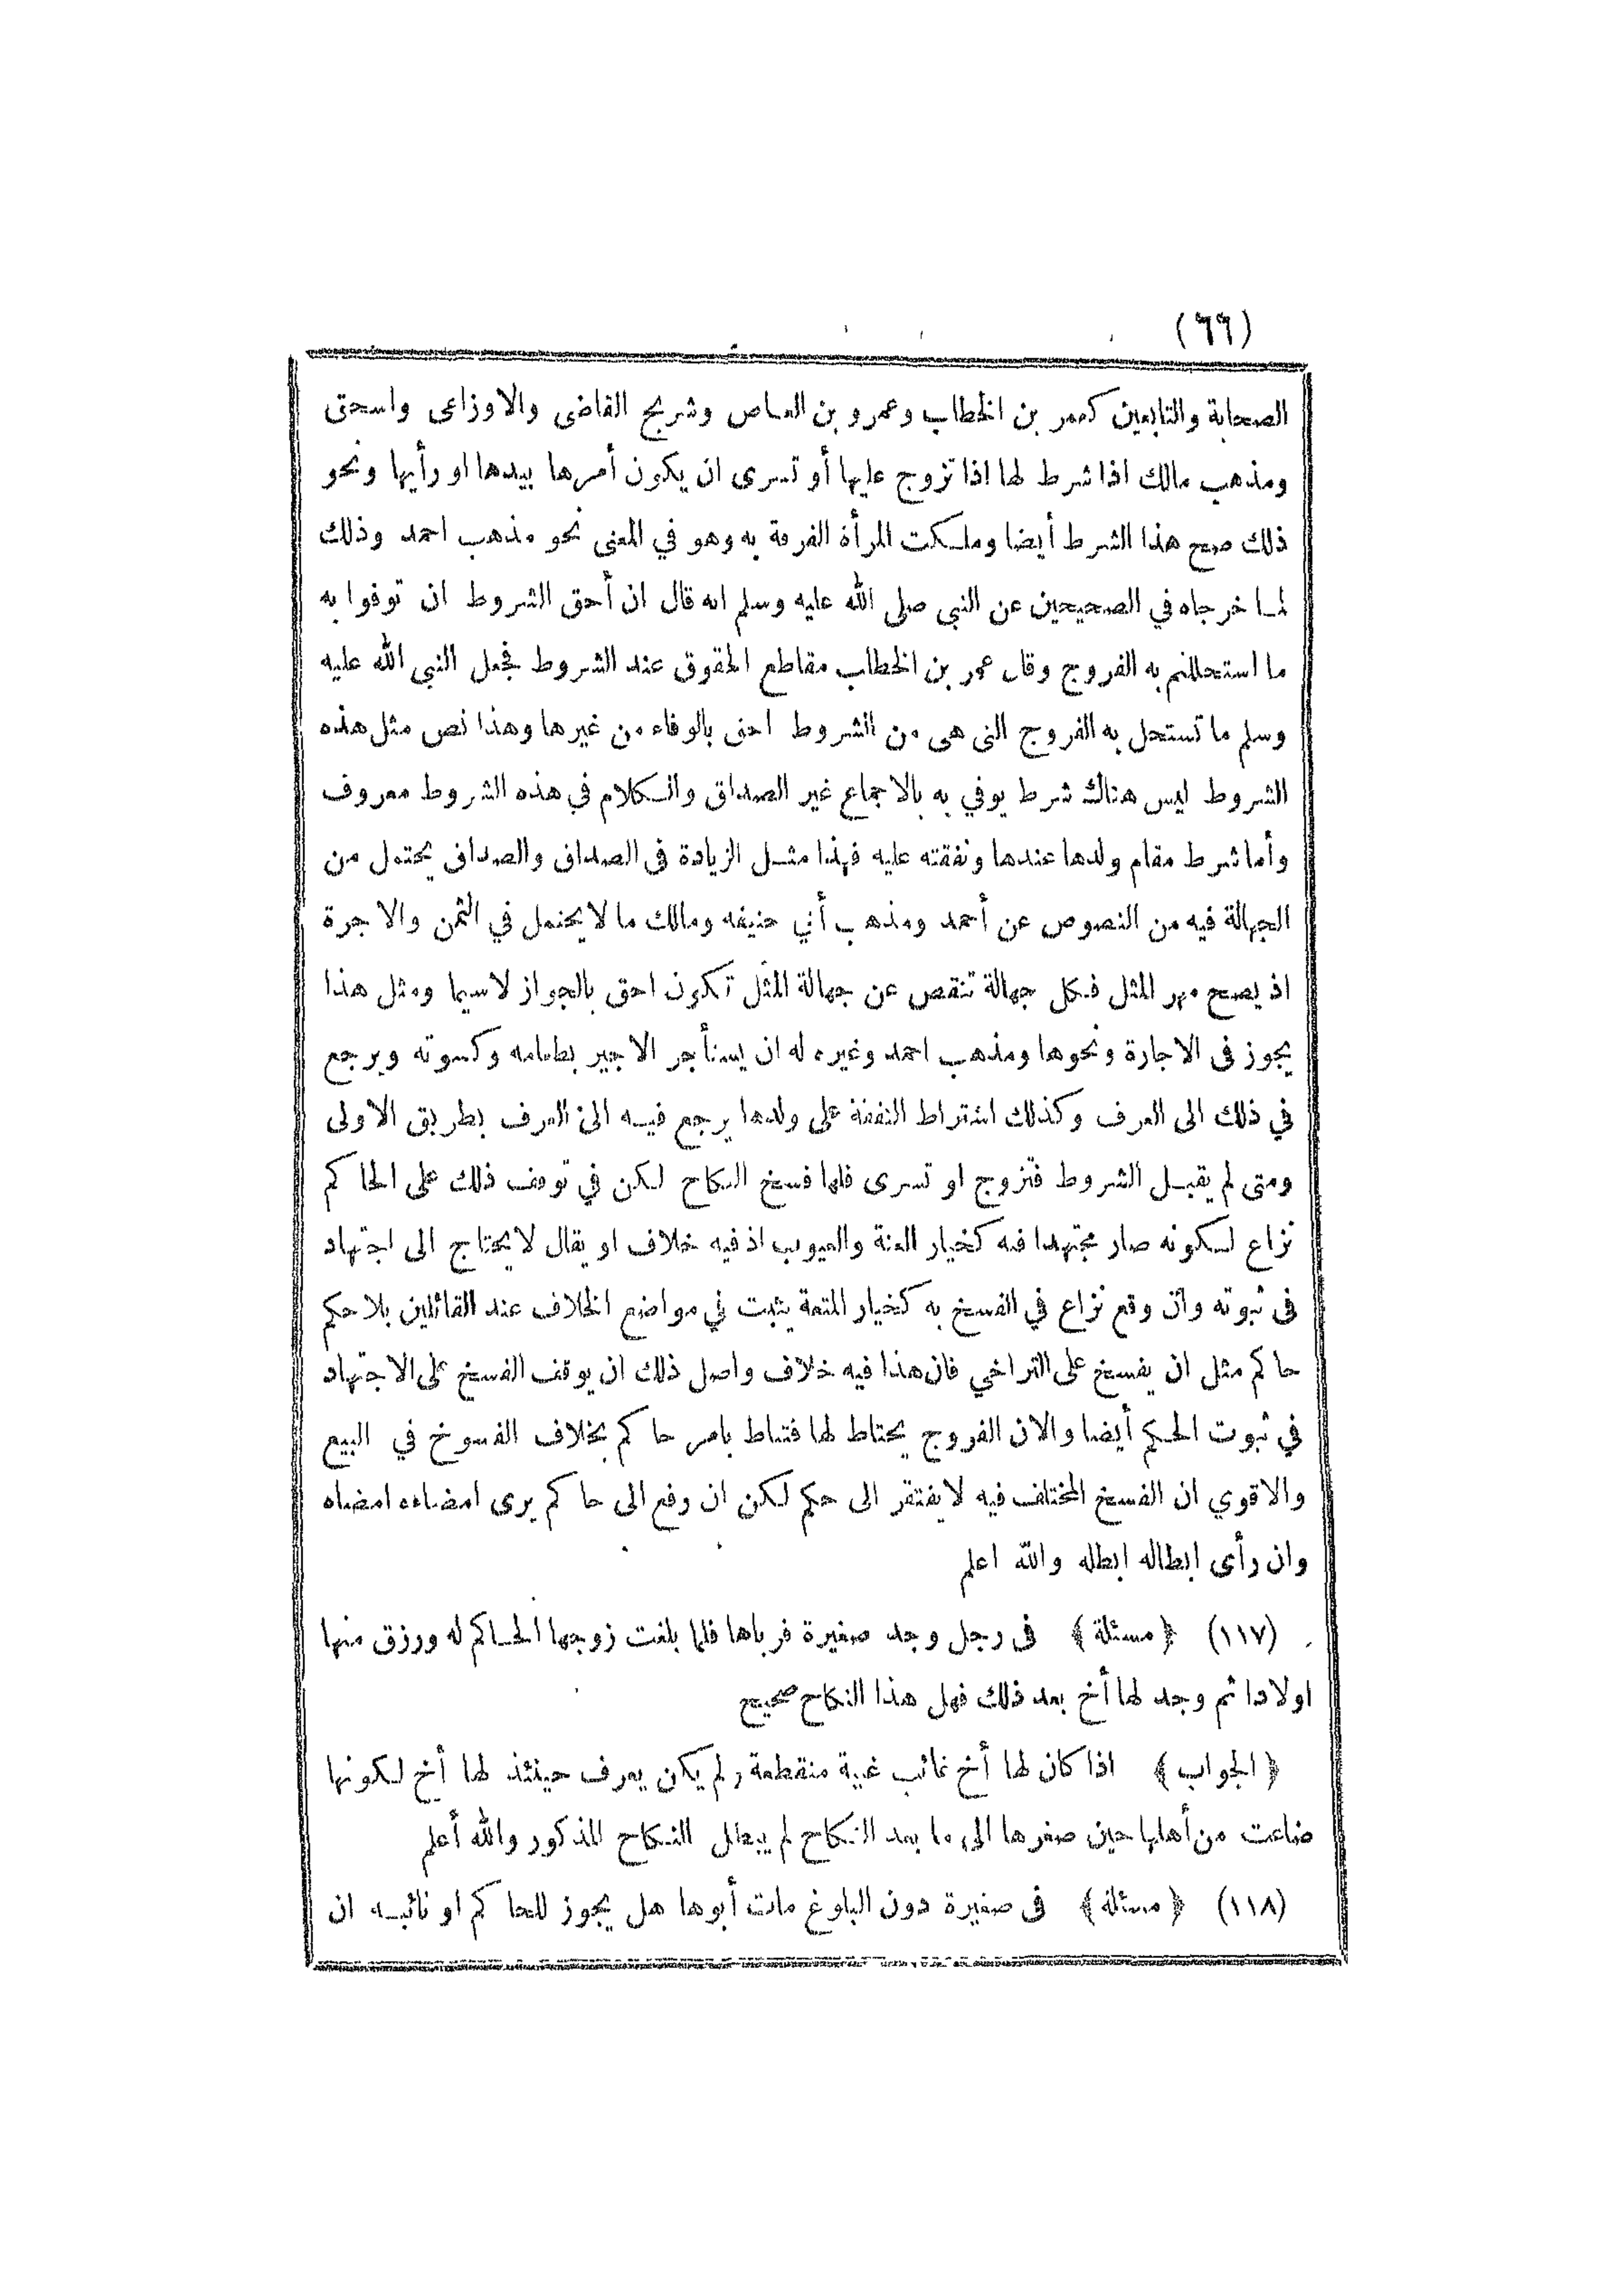 (٦٦)
الصحابة والتابعين كعمر بن الخطاب وعمرو بن العاص وشريح القاضى والاوزاعى واسحق
ومذهب مالك اذا شرط لها اذا تزوج عليها أو تسرى ان يكون أمرها بيدها او رأيها ونحو
ذلك صح هذا الشرط أيضا وملكت المرأة الفرقة به وهو في المعنى نحو مذهب احمد وذلك
لما خرجاه في الصحيحين عن النبي صلى الله عليه وسلم انه قال ان أحق الشروط ان توفوا به
ما استحللتم به الفروج وقال عمر بن الخطاب مقاطع الحقوق عند الشروط فجعل النبي الله عليه
وسلم ما تستحل به الفروج التى هى من الشروط احق بالوفاء من غيرها وهذا نص مثل هذه
الشروط ليس هناك شرط يوفي به بالاجماع غير الصداق والكلام في هذه الشروط معروف
وأما شرط مقام ولدها عندها ونفقته عليه فهذا مثل الزيادة فى الصداق والصداق يحتمل من
الجهالة فيه من النصوص عن أحمد ومذهب أبي حنيفه ومالك ما لا يحتمل في الثمن والاجرة
اذ يصح مهر المثل فكل جهالة تنقص عن جهالة المثل تكون احق بالجواز لاسيما ومثل هذا
يجوز فى الاجارة ونحوها ومذهب احمد وغيره له ان يستأجر الاجير بطعامه وكسوته ويرجع
في ذلك الى العرف وكذلك اشتراط النفقة على ولدها يرجع فيه الى العرف بطريق الاولى
ومتى لم يقبل الشروط فتزوج او تسرى فلها فسخ النكاح لكن في توقف ذلك على الحاكم
نزاع لكونه صار مجتهدا فيه كخيار العنة والعيوب اذ فيه خلاف او يقال لا يحتاج الى اجتهاد
فى ثبوته وان وقع نزاع في الفسخ به كخيار المتعة يثبت في مواضع الخلاف عند القائلين بلا حكم
حاكم مثل ان يفسخ على التراخي فان هذا فيه خلاف واصل ذلك ان يوقف الفسخ على الاجتهاد
في ثبوت الحكم أيضا والان الفروج يحتاط لها فتناط بامر حاكم بخلاف الفسوخ في البيع
والاقوي ان الفسخ المختلف فيه لا يفتقر الى حكم لكن ان رفع الى حاكم يرى امضاءه امضاه
وان رأى ابطاله ابطله والله اعلم
(١١٧) ﴿مسئلة﴾ فى رجل وجد صغيرة فرباها فلما بلغت زوجها الحاكم له ورزق منها
اولادا ثم وجد لها أخ بعد ذلك فهل هذا النكاح صحيح
﴿الجواب﴾ اذا كان لها أخ غائب غيبة منقطعة ولم يكن يعرف حينئذ لها أخ لكونها
ضاعت من أهلها حين صغرها الى ما بعد النكاح لم يبطل النكاح المذكور والله أعلم
(١١٨) ﴿مسئلة﴾ فى صغيرة دون البلوغ مات أبوها هل يجوز للحاكم او نائبه ان